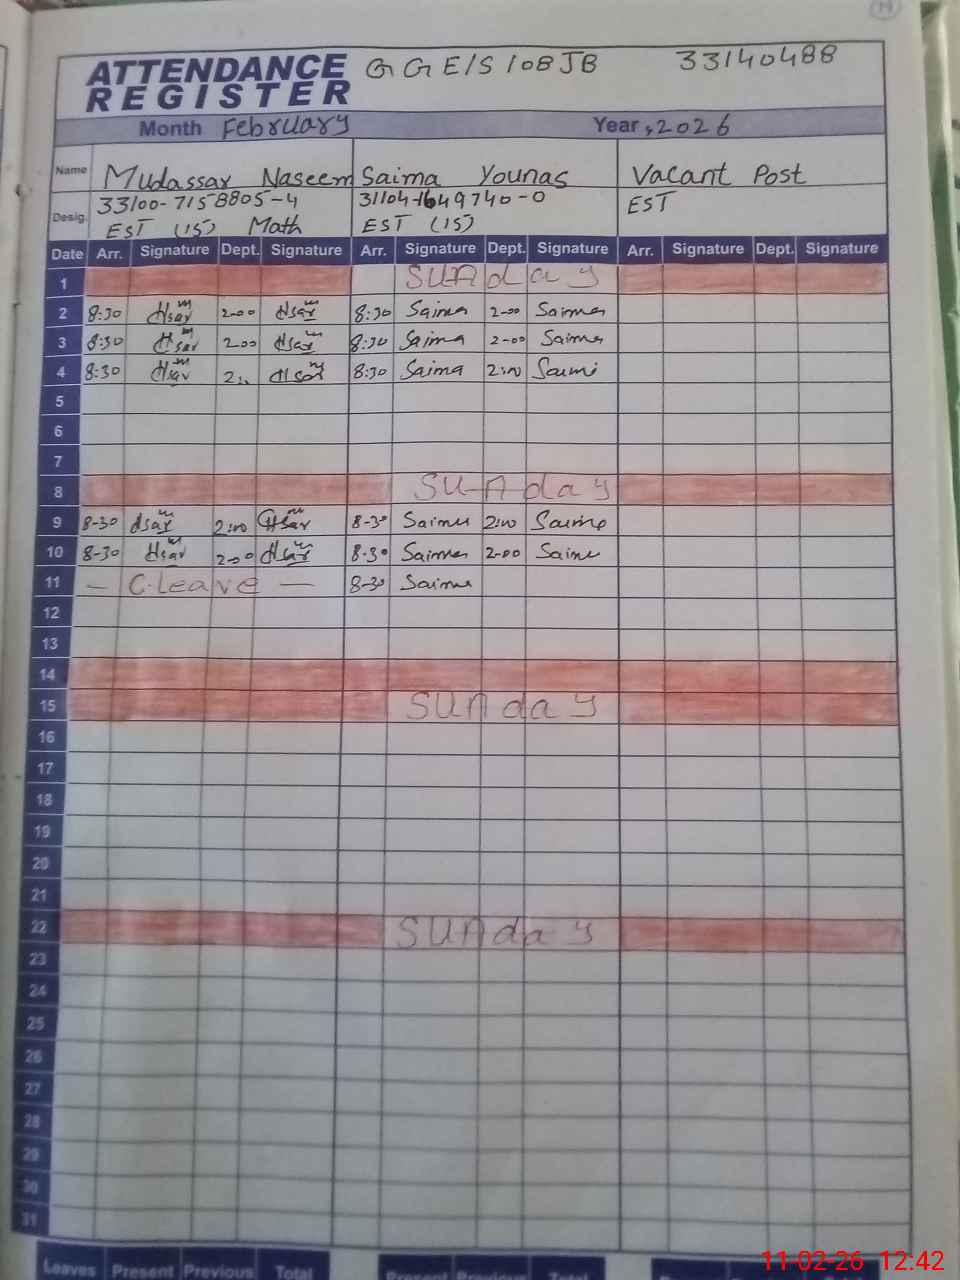 ATTENDANCE REGISTER GGE/S 108JB 33140488
Month February Year, 2026
Name Mudassar Naseem Saima Younas Vacant Post
Desig. 33100-7158805-4 31104-1649740-0 EST
EST (15) Math EST (15)
Date Arr. Signature Dept. Signature Arr. Signature Dept. Signature Arr. Signature Dept. Signature
1 SUNday
2 8:30 2-00 8:30 Saima 2-00 Saima
3 8:30 200 8:30 Saima 2-00 Saima
4 8:30 8:30 Saima 2:00 Saima
5
6
7
8 SUNday
9 8-30 2:00 8-30 Saima 2:00 Saima
10 8-30 2-00 8-30 Saima 2-00 Saima
11 - C.leave - 8-30 Saima
12
13
14
15 SUNday
16
17
18
19
20
21
22 SUNday
23
24
25
26
27
28
29
30
31
Leaves Present Previous Total Present Previous Total
11-02-26 12:42